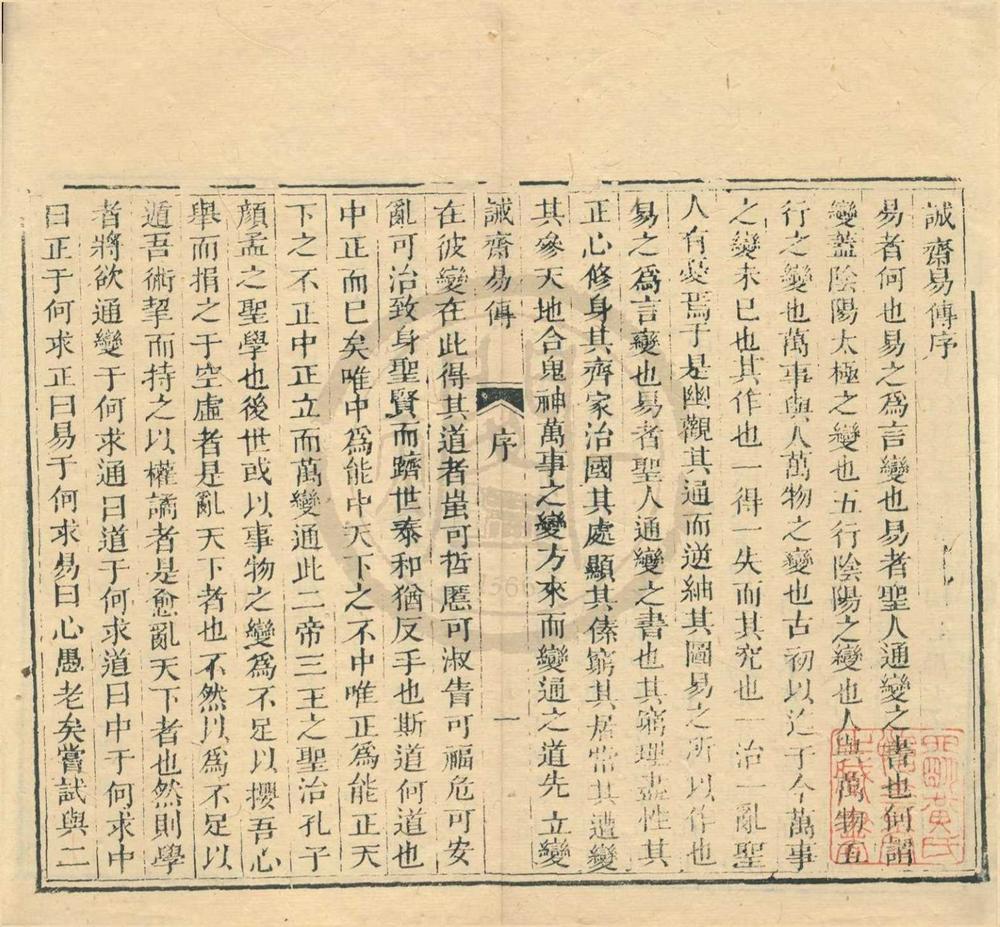 誠齋易傳序
易者何也易之爲言變也易者聖人通變之書也何謂
變蓋陰陽太極之變也五行陰陽之變也人與萬物五
行之變也萬事與人萬物之變也古初以迄于今萬事
之變未已也其作也一得一失而其究也一治一亂聖
人有憂焉于是幽觀其通而逆紬其圖易之所以作也
易之爲言變也易者聖人通變之書也其窮理盡性其
正心修身其齊家治國其處顯其傃窮其居常其遭變
其參天地合鬼神萬事之變方來而變通之道先立變
誠齋易傳 序 一
在彼變在此得其道者蚩可哲慝可淑眚可福危可安
亂可治致身聖賢而躋世泰和猶反手也斯道何道也
中正而已矣唯中爲能中天下之不中唯正爲能正天
下之不正中正立而萬變通此二帝三王之聖治孔子
顔孟之聖學也後世或以事物之變爲不足以攖吾心
舉而捐之于空虛者是亂天下者也不然以爲不足以
遁吾術挈而持之以權譎者是愈亂天下者也然則學
者將欲通變于何求通曰道于何求道曰中于何求中
曰正于何求正曰易于何求易曰心愚老矣嘗試與二